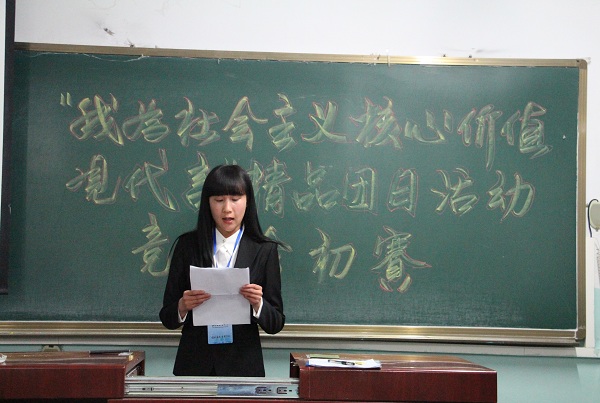 “我为社会主义核心价值
观代言”精品团日活动
竞 初賽